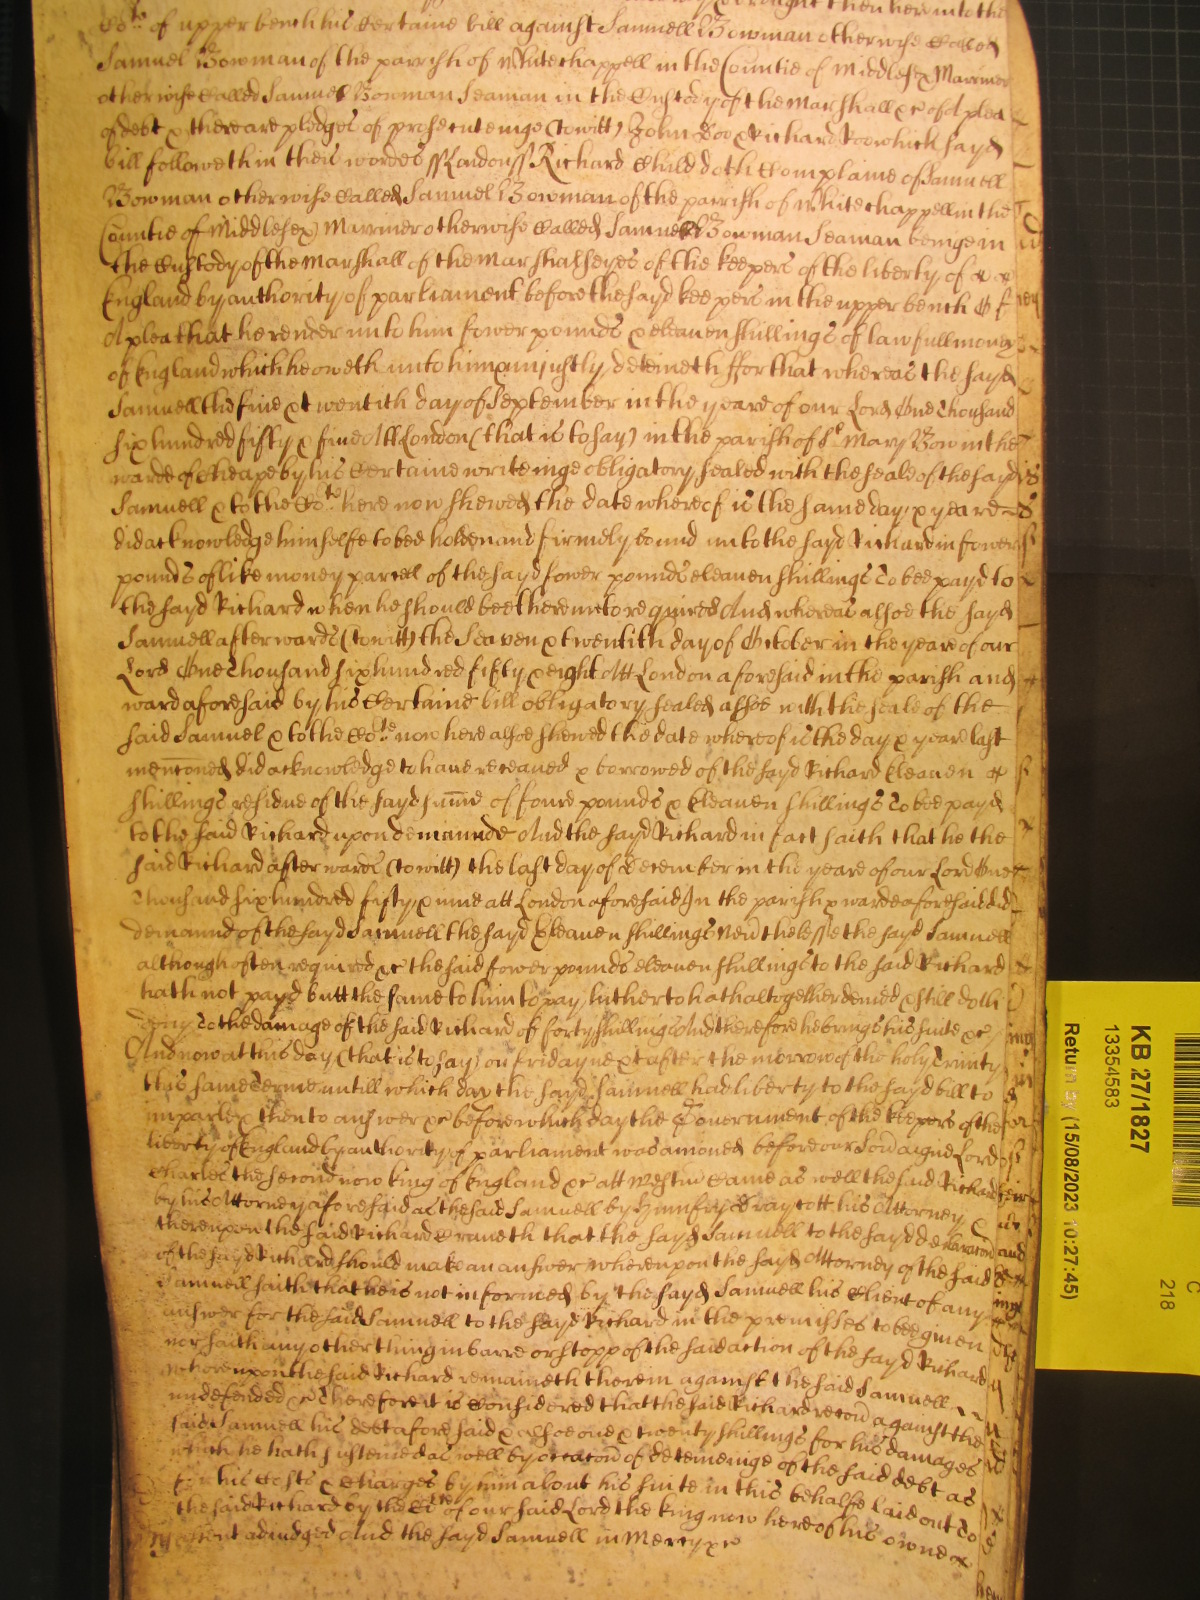 brought then here into the
Cote of upper bench his certaine bill against Samuell Bowman otherwise called
Samuel Bowman of the parrish of Whitechappell in the Countie of Middlesex Marriner
otherwise called Samuel Bowman Seaman in the Custody of the Marshall &c of A plea
of debt & there are pledges of prosecuteinge (towitt) John Doo & Richard Roo which sayd
bill followeth in theis wordes ss London ss Richard Child doth Complaine of Samuell
Bowman otherwise called Samuel Bowman of the parrish of Whitechappell in the
Countie of Middlesex Marriner otherwise called Samuel Bowman Seaman beinge in
the Custody of the Marshall of the Marshalseyes of the keepers of the liberty of
England by authority of parliament before the sayd keepers in the upper bench Of
A plea that he render unto him fower pounds & eleaven shillings of lawfull money
of England which he oweth unto him & unjustly deteineth ffor that whereas the sayd
Samuell the five & twentith day of September in the yeare of our Lord One thousand
six hundred fifty & five Att London (that is to say) in the parish of St Mary Bow in the
warde of Cheape by his certaine writeinge obligatory sealed with the seale of the sayd
Samuell & to the Cote here now shewed the date whereof is the same day & yeare
did acknowledge himselfe to bee holden and firmely bound unto the sayd Richard in fower
pounds of like money parcell of the sayd fower pounds eleaven shillings To bee payd to
the sayd Richard when he should bee thereunto required And whereas alsoe the sayd
Samuell afterwards (towitt) the Seaven & twentith day of October in the yeare of our
Lord One thousand six hundred fifty & eight Att London aforesaid in the parish and
ward aforesaid by his certaine bill obligatory sealed alsoe with the seale of the
said Samuel & to the Cote now here alsoe shewed the date whereof is the day & yeare last
mencioned did acknowledge to have receaved & borrowed of the sayd Richard Eleaven
shillings residue of the sayd sume of foure pounds & Eleaven shillings To bee payd
to the said Richard upon demaunde And the sayd Richard in fact saith that he the
said Richard afterwards (towitt) the last day of December in the yeare of our Lord One
Thousand six hundred fifty & nine att London aforesaid In the parish & warde aforesaid did
demaund of the sayd Samuell the sayd Eleaven shillings Nevthelesse the sayd Samuell
although often required &c the said fower pounds eleaven shillings to the said Richard
hath not payd butt the same to him to pay hitherto hath altogether denied & still doth
deny To the damage of the said Richard of forty shillings And therefore he brings his suite &c
And now at this day (that is to say) on friday next after the morrow of the holy Trinity
this same Terme untill which day the sayd Samuell had liberty to the sayd bill to
imparle & then to answer &c before which day the Government of the keepers of the
liberty of England by authority of parliament was amoved before our Soveraigne Lord
Charles the second now king of England &c att Westm came as well the said Richard
by his Attorney aforesaid as the said Samuell by Humfry Draycott his Attorney &
thereupon the said Richard craveth that the sayd Samuell to the sayd declaracon
of the sayd Richard should make an answer whereupon the sayd Attorney of the said
Samuell saith that he is not informed by the sayd Samuell his Client of any
answer for the said Samuell to the sayd Richard in the premisses to bee given
nor saith any other thing in barre or stopp of the said action of the sayd Richard
whereupon the said Richard remaineth therein against the said Samuell
undefended &c Therefore it is Considered that the said Richard recov against the
said Samuell his debt aforesaid & alsoe one & twenty shillings for his damages
which he hath susteined as well by occacon of deteineinge of the said debt as
for his costs & charges by him about his suite in this behalfe laid out To
the said Richard by the Cote of our said Lord the king now here of his owne
assent adiudged And the sayd Samuell in Mercy &c
KB 27/1827
13354583
Return by (15/08/2023 10:27:45)
218